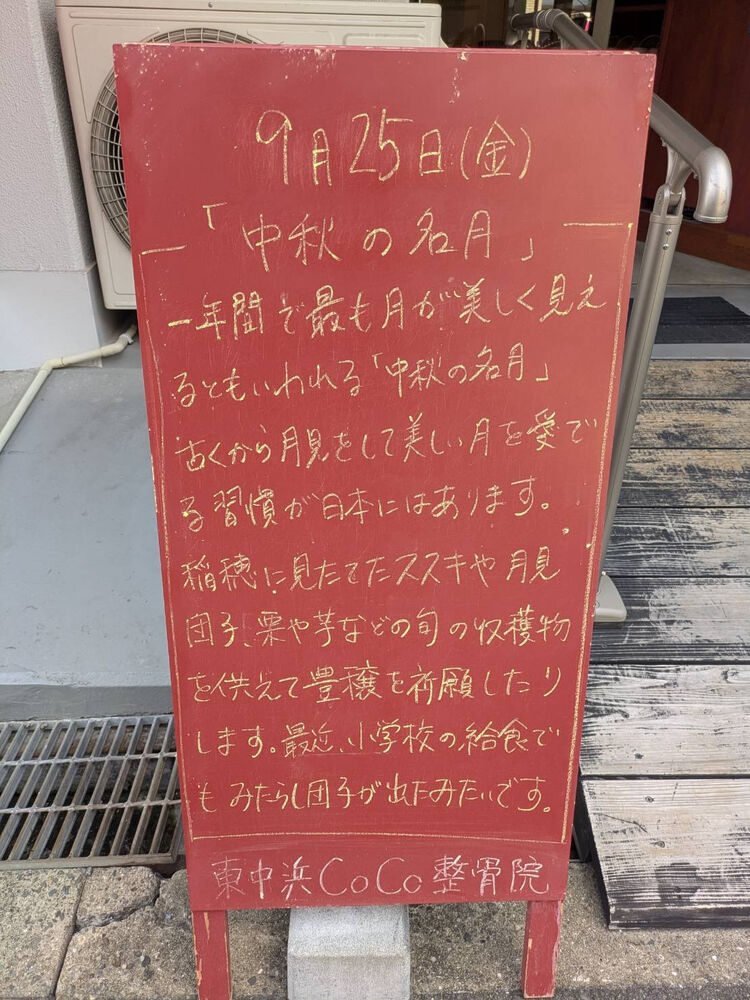 9月25日(金)
「中秋の名月」
一年間で最も月が美しく見え
るともいわれる「中秋の名月」
古くから月見をして美しい月を愛で
る習慣が日本にはあります。
稲穂に見たてたススキや月見
団子、栗や芋などの旬の収穫物
を供えて豊穣を祈願したり
します。最近、小学校の給食で
もみたらし団子が出たみたいです。
東中浜CoCo整骨院